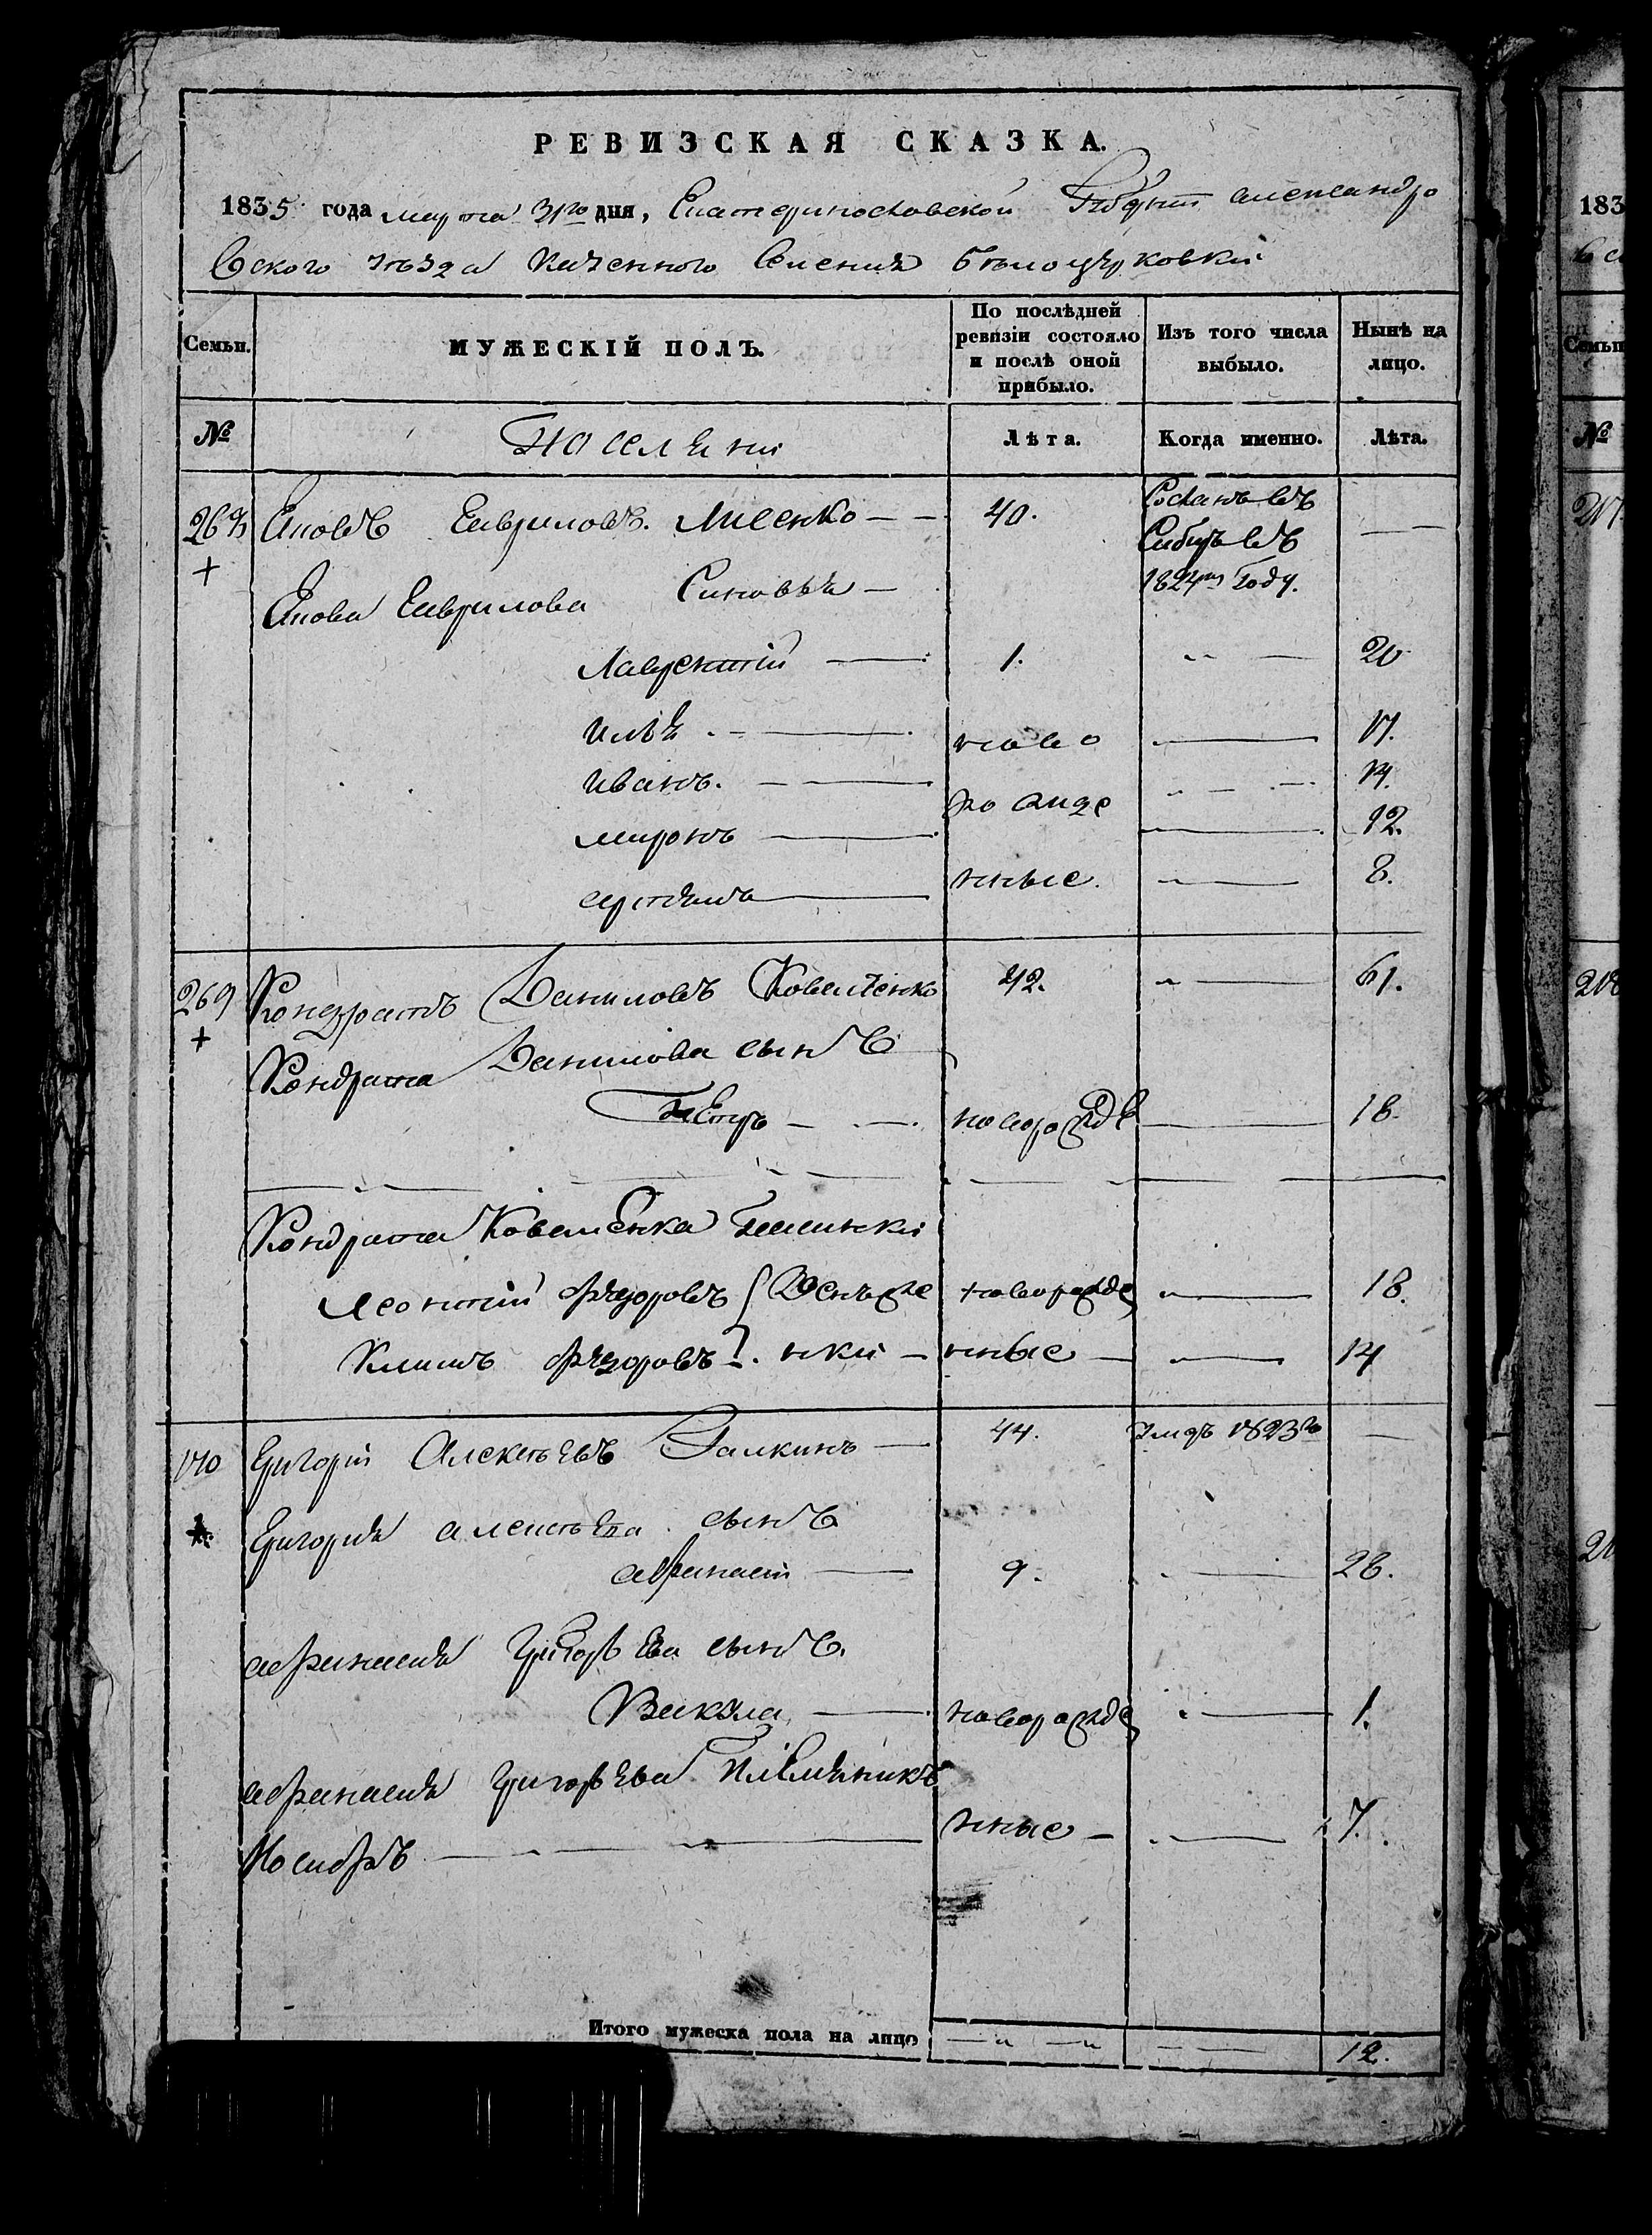 РЕВИЗСКАЯ СКАЗКА.
1835 года марта 31го дня, Екатеринославской Губерни александро
вского уѣзда Казенного Селения бѣлоцерковки
Семьи. МУЖЕСКІЙ ПОЛЪ. По послѣдней ревизіи состояло и послѣ оной прибыло. Изъ того числа выбыло. Нынѣ на лицо.
№ Лѣта. Когда именно. Лѣта.
268 Яковъ Гавриловъ Лисенко — 40. Сосланъ въ Сибирь въ 1824м году. —
+
Якова Гаврилова Синовья —
Лаврентій — 1. — 20
илья — ново — 17.
иванъ. — 14.
миронъ — рожде — 12.
артемъ — нные. — 8.
269 Кондратъ Даниловъ Коваленко 42. — 61.
+
Кондрата Данилова сынъ
Петръ — новорожде — 18.
Кондрата Коваленка
Леонтій Федоровъ новорожде — 18.
Климъ Федоровъ нки — нные — 14
Григорій Алексѣевъ Галкинъ — 44. умеръ 1823го —
Григорія алексѣева сынъ
афанасій — 9. — 28.
афанасия Григорьева сынъ.
Вакула — новорожде — 1.
афанасия григорьева племяникъ
Иосифъ — нные — 7.
Итого мужеска пола на лицо — 12.
183
Семьи
№